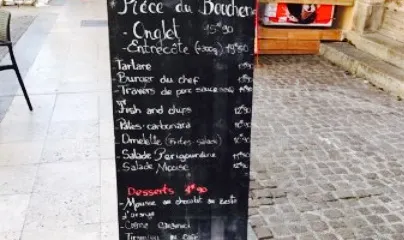 Pièce du Boucher
- Onglet 15€90
- Entrecôte (300g) 19€50
Tartare
- Burger du chef
- Travers de porc sauce
Fish and chips
Pâtes carbonara
Omelette (Frites-salade)
Salade Périgourdine
Salade Niçoise
Desserts
- Mousse au chocolat au zeste
d'orange
- Crème caramel
- Tiramisu au café